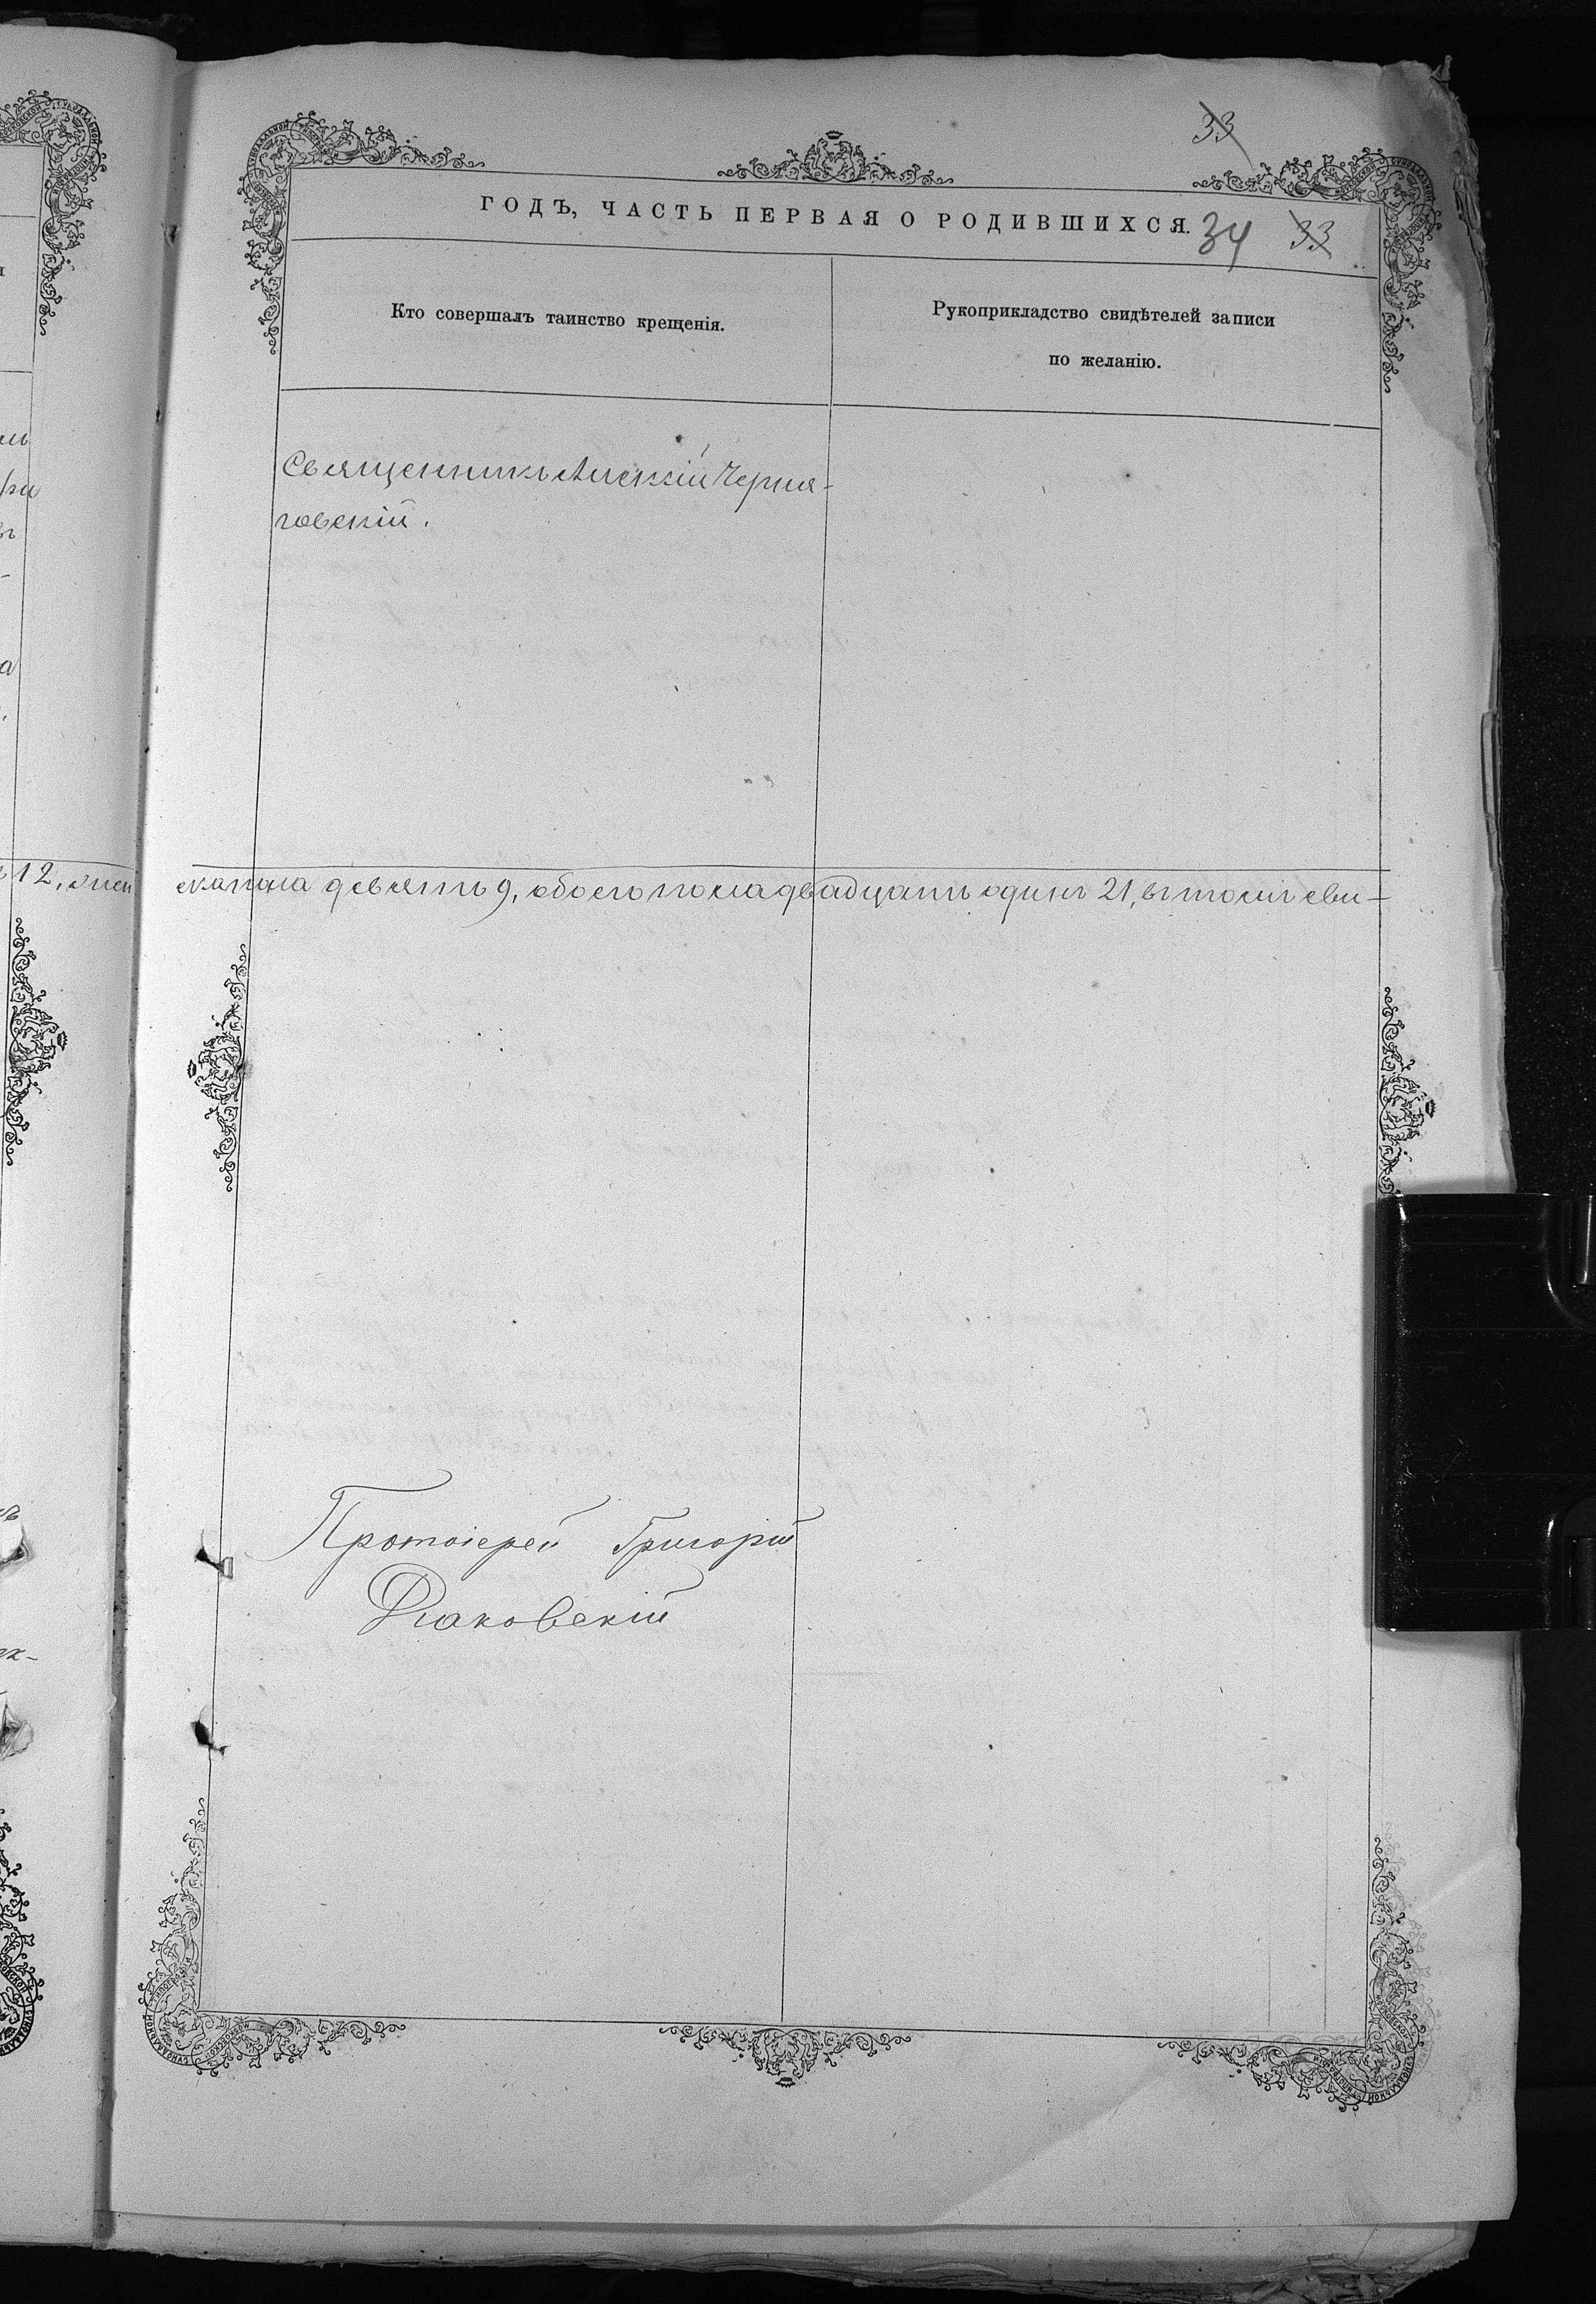 33
ГОДЪ, ЧАСТЬ ПЕРВАЯ О РОДИВШИХСЯ. 34 33
Кто совершалъ таинство крещенія.
Рукоприкладство свидѣтелей записи
по желанію.
Священникъ Алексій Черня-
говскій.
12, жен
скаго пола девять 9, обоего пола двадцать одинъ 21, въ томъ сви-
Протоіерей Григорій
Діаковскій